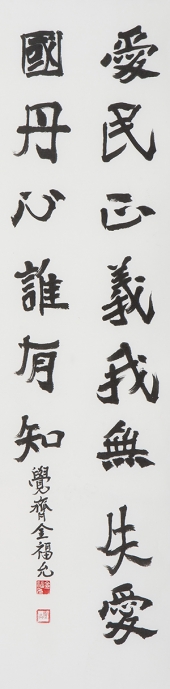 愛民正義我無失愛
國丹心誰有知
覺齊全福允